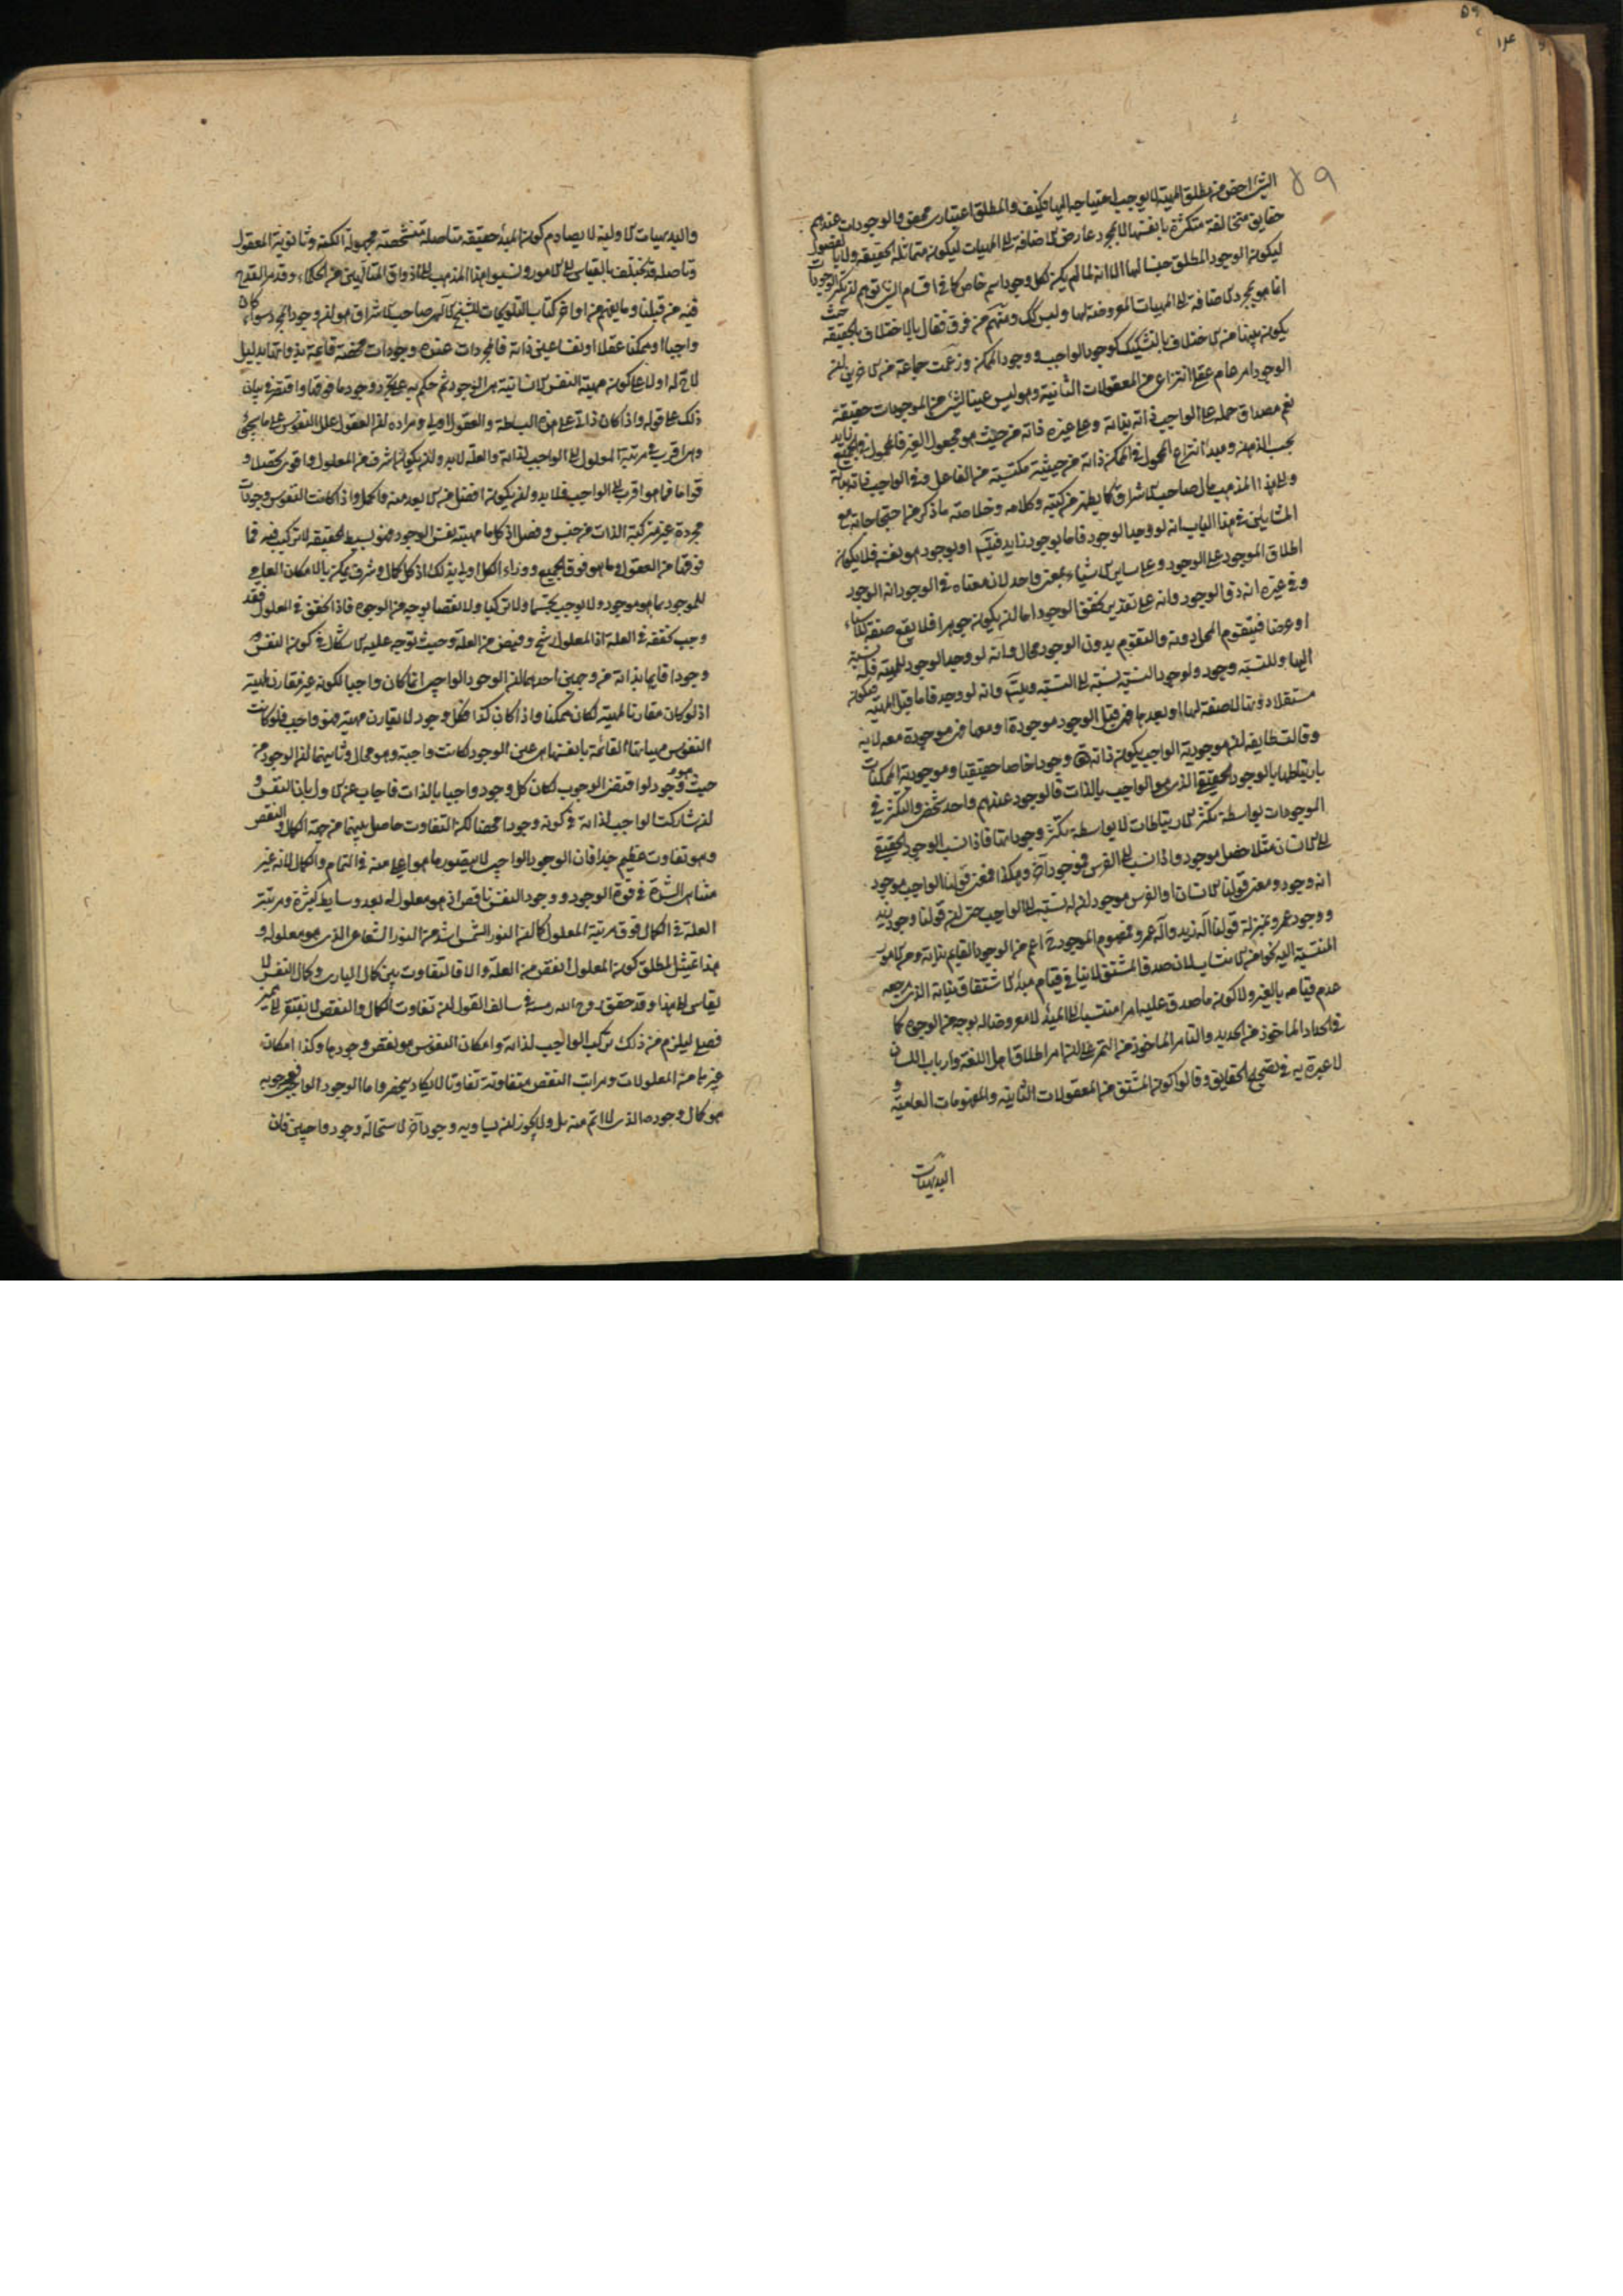 ٥٩
٥٩
الشئ اخص من مطلق المهية لا يوجب احتياجه اليها وكيف والمطلق اعتباري محض والوجودات عندهم
حقايق متخالفة متكثرة بانفسها لا بمجرد عارض الاضافة الى المهيات ليكون متماثلة الحقيقة ولا بالفصول
ليكون الوجود المطلق جنسا لها الا انه لما لم يكن لكل وجود اسم خاص كما في اقسام الشئ توهم ان تكثر الوجودات
انما هو بمجرد الاضافة الى المهيات المعروضة لها وليس كك ومنهم من فرق فقال بالاختلاف بالحقيقة حيث
يكون بينها من الاختلاف بالتشكيك كوجود الواجب ووجود الممكن وزعمت جماعة من الاخرين ان
الوجود امر عام عقلى انتزاعى من المعقولات الثانية وهو ليس عينا لشئ من الموجودات حقيقة
نعم مصداق حمله على الواجب ذاته بذاته وعلى غيره ذاته من حيث هو مجعول الغير فالمحمول في الجميع زايد
بحسب الذهن ومبدأ انتزاع المحمول في الممكن ذاته من حيثية مكتسبة من الفاعل وفي الواجب ذاته بذاته
والى هذا المذهب مال صاحب الاشراق كما يظهر من كتبه وكلامه وخلاصة ما ذكر من احتجاجاته مع
المشايين في هذا الباب انه لو وجد الوجود فاما بوجود زايد فيتسلسل او بوجود هو نفسه فلا يكون
اطلاق الموجود على الوجود وعلى ساير الاشياء بمعنى واحد لان معناه في الوجود انه الوجود
وفي غيره انه ذو الوجود وانه على تقدير تحقق الوجود اما ان يكون جوهرا فلا يقع صفة للاشياء
او عرضا فيتقوم المحل دونه والتقوم بدون الوجود محال وانه لو وجد الوجود للمهية فله نسبة
اليها وللنسبة وجود ولوجود النسبة نسبة الى النسبة ويتسلسل وانه لو وجد فاما قبل المهية فيكون
مستقلا دونها لا صفة لها او بعدها فهى قبل الوجود موجودة او معها فهى موجودة معه لا به
وقالت طايفة ان موجودية الواجب بكون ذاته وجودا خاصا حقيقيا وموجودية الممكنات
بارتباطها بالوجود الحقيقى الذى هو الواجب بالذات فالوجود عندهم واحد شخصى والتكثر في
الموجودات بواسطة تكثر الارتباطات لا بواسطة تكثر وجوداتها فاذا نسب الوجود الحقيقى
الى الانسان مثلا حصل موجود واذا نسب الى الفرس فموجود آخر وهكذا فمعنى قولنا الواجب موجود
انه وجود ومعنى قولنا الانسان او الفرس موجود ان له نسبة الى الواجب حتى ان قولنا وجود زيد
ووجود عمرو بمنزلة قولنا اله زيد واله عمرو فمفهوم الموجود اعم من الوجود القايم بذاته ومن الامور
المنتسبة اليه نحوا من الانتساب لان صدق المشتق لا ينافي قيام مبدأ الاشتقاق بذاته الذى مرجعه
عدم قيامه بالغير ولا كون ما صدق عليه امرا منتسبا الى المبدأ لا معروضا له بوجه من الوجوه كما
في الحداد الماخوذ من الحديد والتامر الماخوذ من التمر على ان امر اطلاق اهل اللغة وارباب اللسان
لا عبرة به في تصحيح الحقايق وقالوا كون المشتق من المعقولات الثانية والمفهومات العامية و
البديهيات
والبديهيات الاولية لا يصادم كون المبدأ حقيقة متاصلة متشخصة مجهولة الكنه وثانوية المعقول
وتاصله قد يختلف بالقياس الى الامور ونسبوا هذا المذهب الى اذواق المتالهين من الحكماء وقد مر القدح
فيه من قبلنا وما يفهم من اواخر كتاب التلويحات للشيخ الالهى صاحب الاشراق هو ان وجود المجرد سواء كان
واجبا او ممكنا عقلا او نفسا عين ذاته فالمجردات عنده وجودات محضة قائمة بذواتها بدليل
لاح له اولا على كون مهية النفس الانسانية هى الوجود ثم حكم به على تجرد وجود ما فوقها واقتصر في بيان
ذلك على قوله واذا كان ذاتي على هذه البساطة والعقول اولى ومراده ان العقول علل النفوس على ما يجئ
وهى اقرب في مرتبة المعلول الى الواجب لذاته والعلة لا بد وان يكون اشرف من المعلول واقوى تحصلا و
قواما فما هو اقرب الى الواجب فلا بد وان يكون افضل من الابعد منه واكمل واذا كانت النفوس وجودات
مجردة غير مركبة الذات من جنس وفصل اذ كل ما مهيته نفس الوجود فهو بسيط الحقيقة لا تركيب فيه فما
فوقها من العقول وما هو فوق الجميع ووراء الكل اولى بذلك اذ كل كمال وشرف يمكن بالامكان العامى
للموجود بما هو موجود ولا يوجب تجسما ولا تركبا ولا نقصا بوجه من الوجوه فاذا تحقق في المعلول فقد
وجب تحققه في العلة اذ المعلول رشح وفيض من العلة وحيث توجه عليه الاشكال في كون النفس
وجودا قايما بذاته من وجهين احدهما ان الوجود الواجبى انما كان واجبا لكونه غير مقارن لمهية
اذ لو كان مقارنا لمهية لكان ممكنا واذا كان كذا فكل وجود لا يقارن مهية فهو واجب فلو كانت
النفوس مهياتها القائمة بانفسها هى عين الوجود لكانت واجبة وهو محال وثانيهما ان الوجود من
حيث هو وجود لو اقتضى الوجوب لكان كل وجود واجبا بالذات فاجاب عن الاول بان النفس و
ان شاركت الواجب لذاته في كونه وجودا محضا لكن التفاوت حاصل بينهما من جهة الكمال والنقص
وهو تفاوت عظيم جدا فان الوجود الواجبى لا يتصور ما هو اعلى منه في التمام والكمال لانه غير
متناهى الشدة في قوة الوجود ووجود النفس ناقص اذ هو معلول له بعد وسايط كثيرة ومرتبة
العلة في الكمال فوق مرتبة المعلول كما ان النور الشمسى اشد من النور الشعاعى الذى هو معلوله و
هذا تمثيل لمطلق كون المعلول انقص من العلة والا فالتفاوت بين كمال البارى وكمال النفس لا
يقاس الى هذا وقد حقق روح الله رمسه في سالف القول ان تفاوت الكمال والنقص لا يفتقر الى مميز
فصلى ليلزم من ذلك تركب الواجب لذاته وامكان النفوس هو نقص وجودها وكذا امكان
غيرها من المعلولات ومراتب النقص متفاوتة تفاوتا لا يكاد ينحصر واما الوجود الواجبى فوجوبه
هو كمال وجوده الذى لا اتم منه بل ولا يجوز ان يساويه وجود آخر لاستحالة وجود واجبين فان